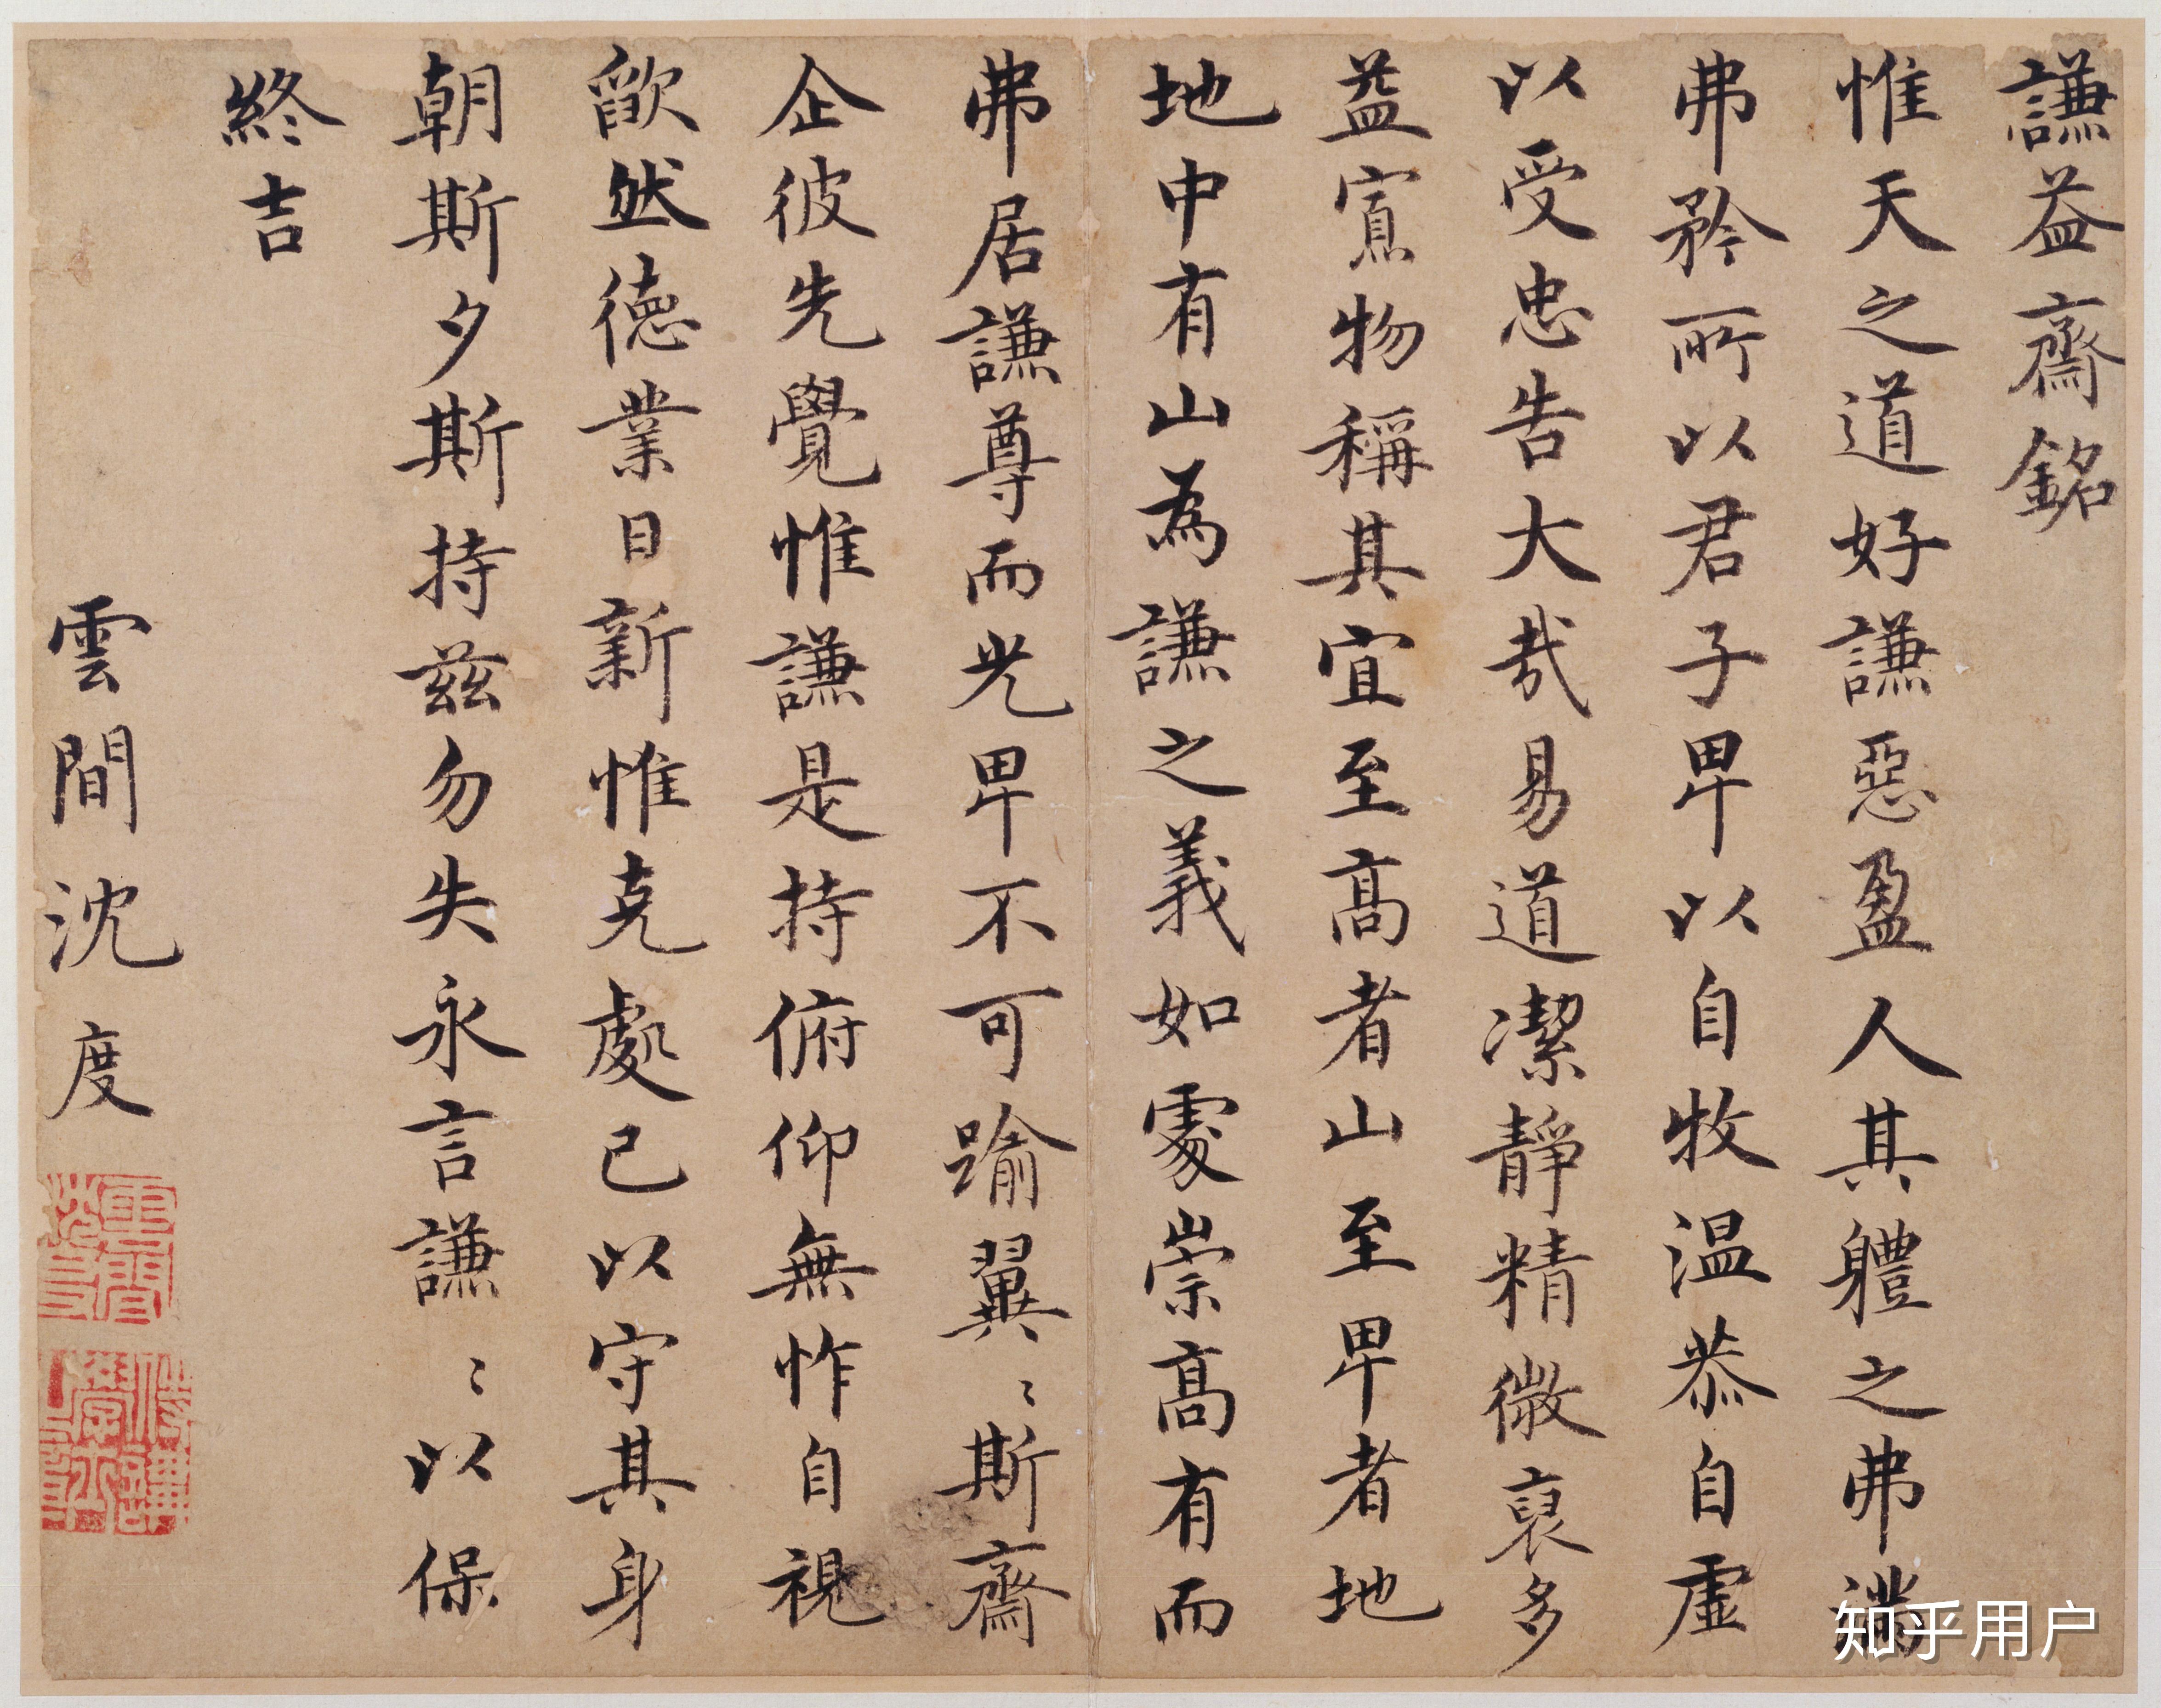 謙益齋銘
惟天之道好謙惡盈人其體之弗滿
弗矜所以君子卑以自牧温恭自虛
以受忠告大哉易道潔靜精微裒多
益寡物稱其宜至高者山至卑者地
地中有山為謙之義如處崇高有而
弗居謙尊而光卑不可踰翼〻斯齋
企彼先覺惟謙是持俯仰無怍自視
歉然德業日新惟克處己以守其身
朝斯夕斯持茲勿失永言謙〻以保
終吉
雲間沈度
知乎用户